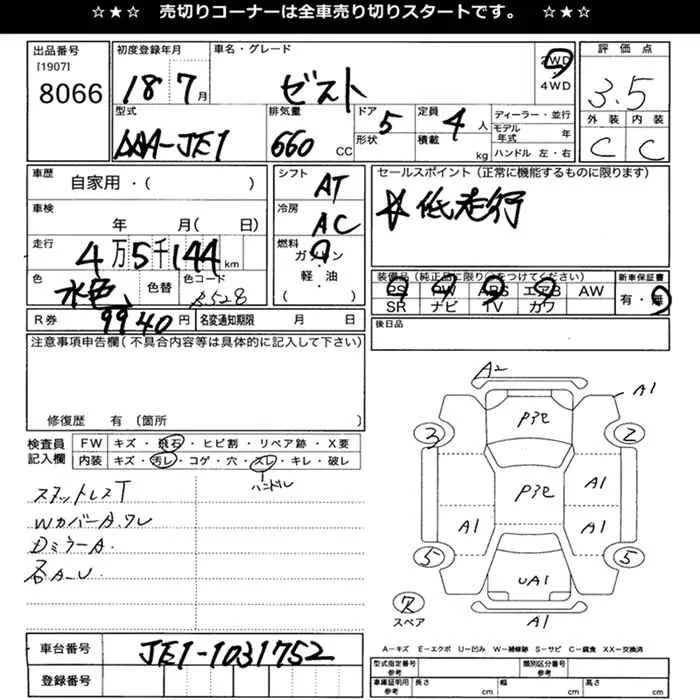 ☆★☆ 売切りコーナーは全車売り切りスタートです。 ☆★☆
出品番号
[1907]
8066
初度登録年月
18 7月
車名・グレード
ゼスト
2WD
4WD
評価点
3.5
外装 内装
C C
型式
DBA-JE1
排気量
660 CC
ドア 5
形状
定員 4 人
積載 kg
ディーラー・並行
モデル年式 年
ハンドル 左・右
車歴 自家用・( )
車検 年 月( 日)
走行 4万5千144km
色 水色
色替
色コード B528
シフト AT
冷房 AC
燃料
ガソリン
軽・油
( )
セールスポイント(正常に機能するものに限ります)
☆低走行
装備品(純正品に限り○をつけてください)
PS PW ABS エアB AW
SR ナビ TV カワ
新車保証書
有・無
後日品
R券 9940円
名変通知期限 月 日
注意事項申告欄(不具合内容等は具体的に記入して下さい)
修復歴 有 〔箇所 〕
検査員
記入欄
FW キズ・飛石・ヒビ割・リペア跡・X要
内装 キズ・汚レ・コゲ・穴・スレ・キレ・破レ
ハンドル
スタットレスT
WカバーA.ワレ
DミラーA.
A2
A1
3
2
A1
A1
A1
5
5
UA1
A1
ス
スペア
A−キズ E−エクボ U−凹み W−補修跡 S−サビ C−腐食 XX−交換済
車台番号 JE1-1031752
登録番号
型式指定番号
参考
類別区分番号
参考
車庫証明用
参考
長さ cm
幅 cm
高さ cm